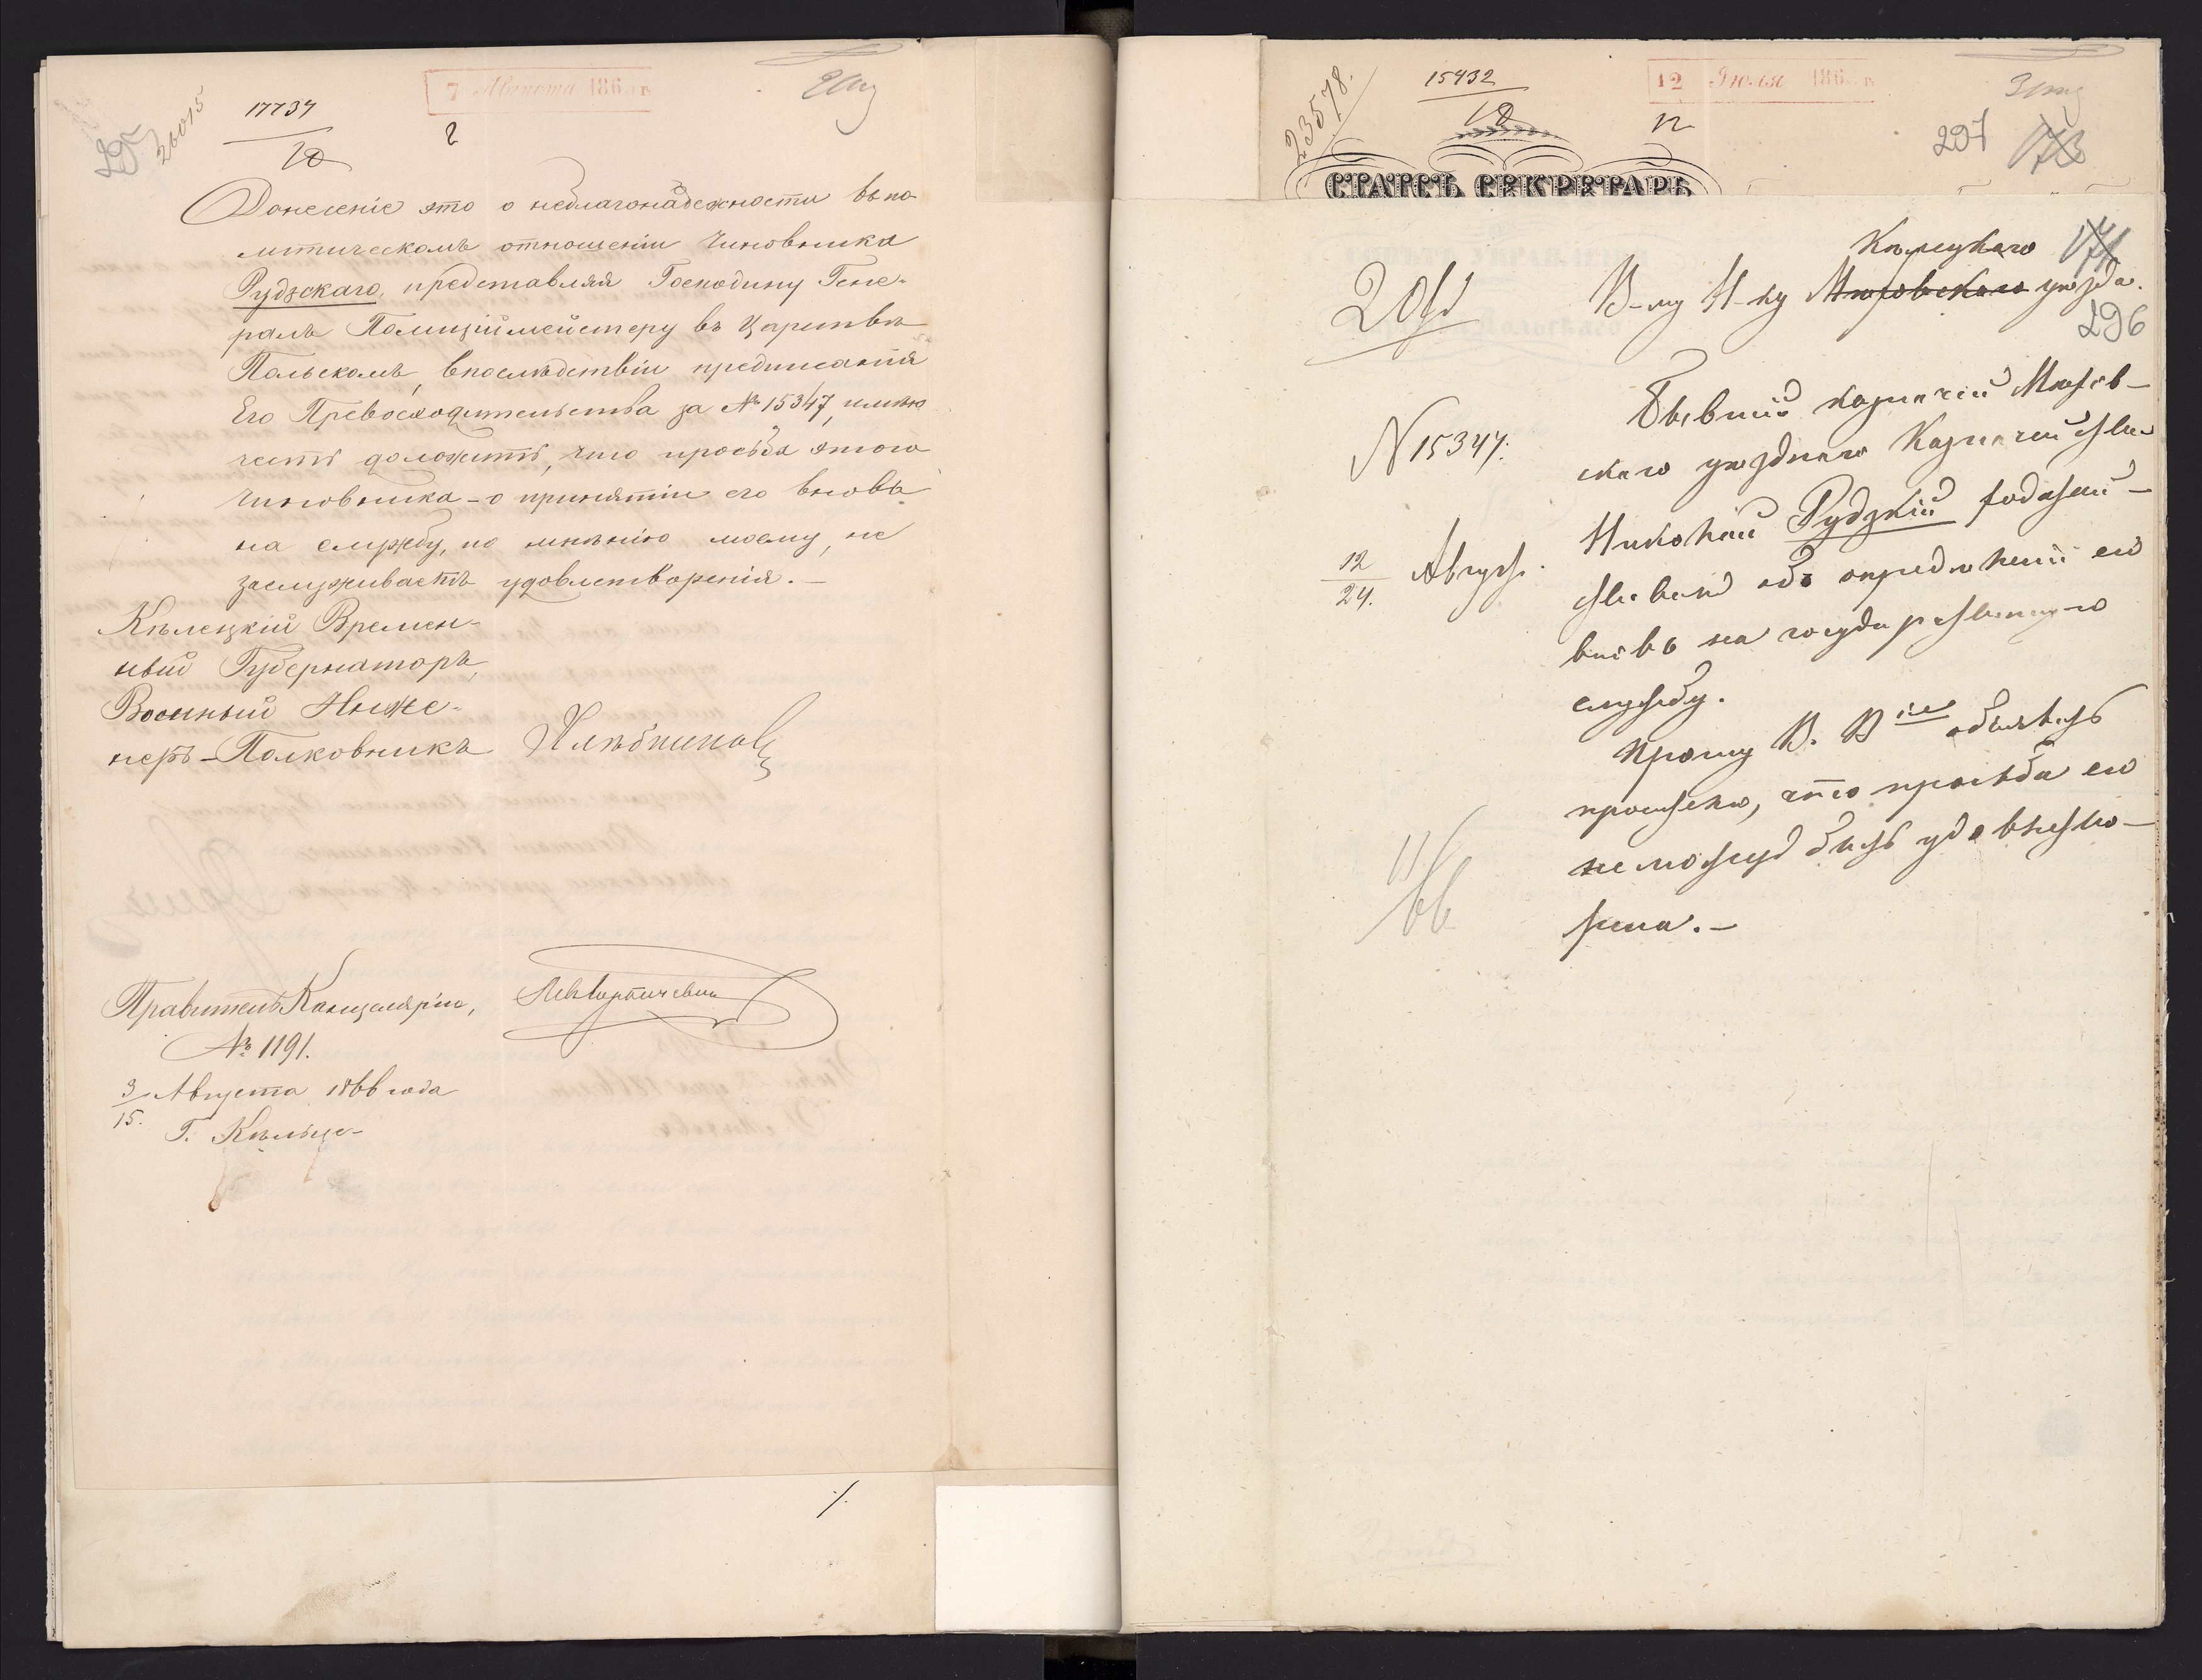 295
26015
17737
10
7 Августа 186 г.
2
Донесеніе это о неблагонадежности въ по-
литическомъ отношеніи Чиновника
Рудзскаго, представляя Господину Гене-
ралъ Полиціймейстеру въ Царствѣ
Польскомъ, впослѣдствіи предписанія
Его Превосходительства за № 15347, имѣю
честь доложить, что просьба этого
Чиновника - о принятіи его вновь
на службу, по мнѣнію моему, не
заслуживаетъ удовлетворенія. —
Кѣлецкій Времен-
ный Губернаторъ,
Военный Инже-
неръ-Полковникъ Хлѣбниковъ
Правитель Канцеляріи,
№ 1191.
3/15. Августа 1866 года
Г. Кѣльце
23578.
15432
10
12 Іюля 186 г.
12
297
173
СТАТСЪ СЕКРЕТАРЬ
Кѣлецкаго
174
В-му Н-ку Мѣховскаго уѣзда.
296
2 отд
№ 15347.
12/24. Август.
Бывшій казначей Мѣхов-
скаго уѣзднаго Казначейства
Николай Рудзкій ходатай-
ствовалъ объ опредѣленіи его
вновь на государственную
службу.
Прошу В. В-іе объявить
просителю, что просьба его
не можетъ быть удовлетво-
рена. —